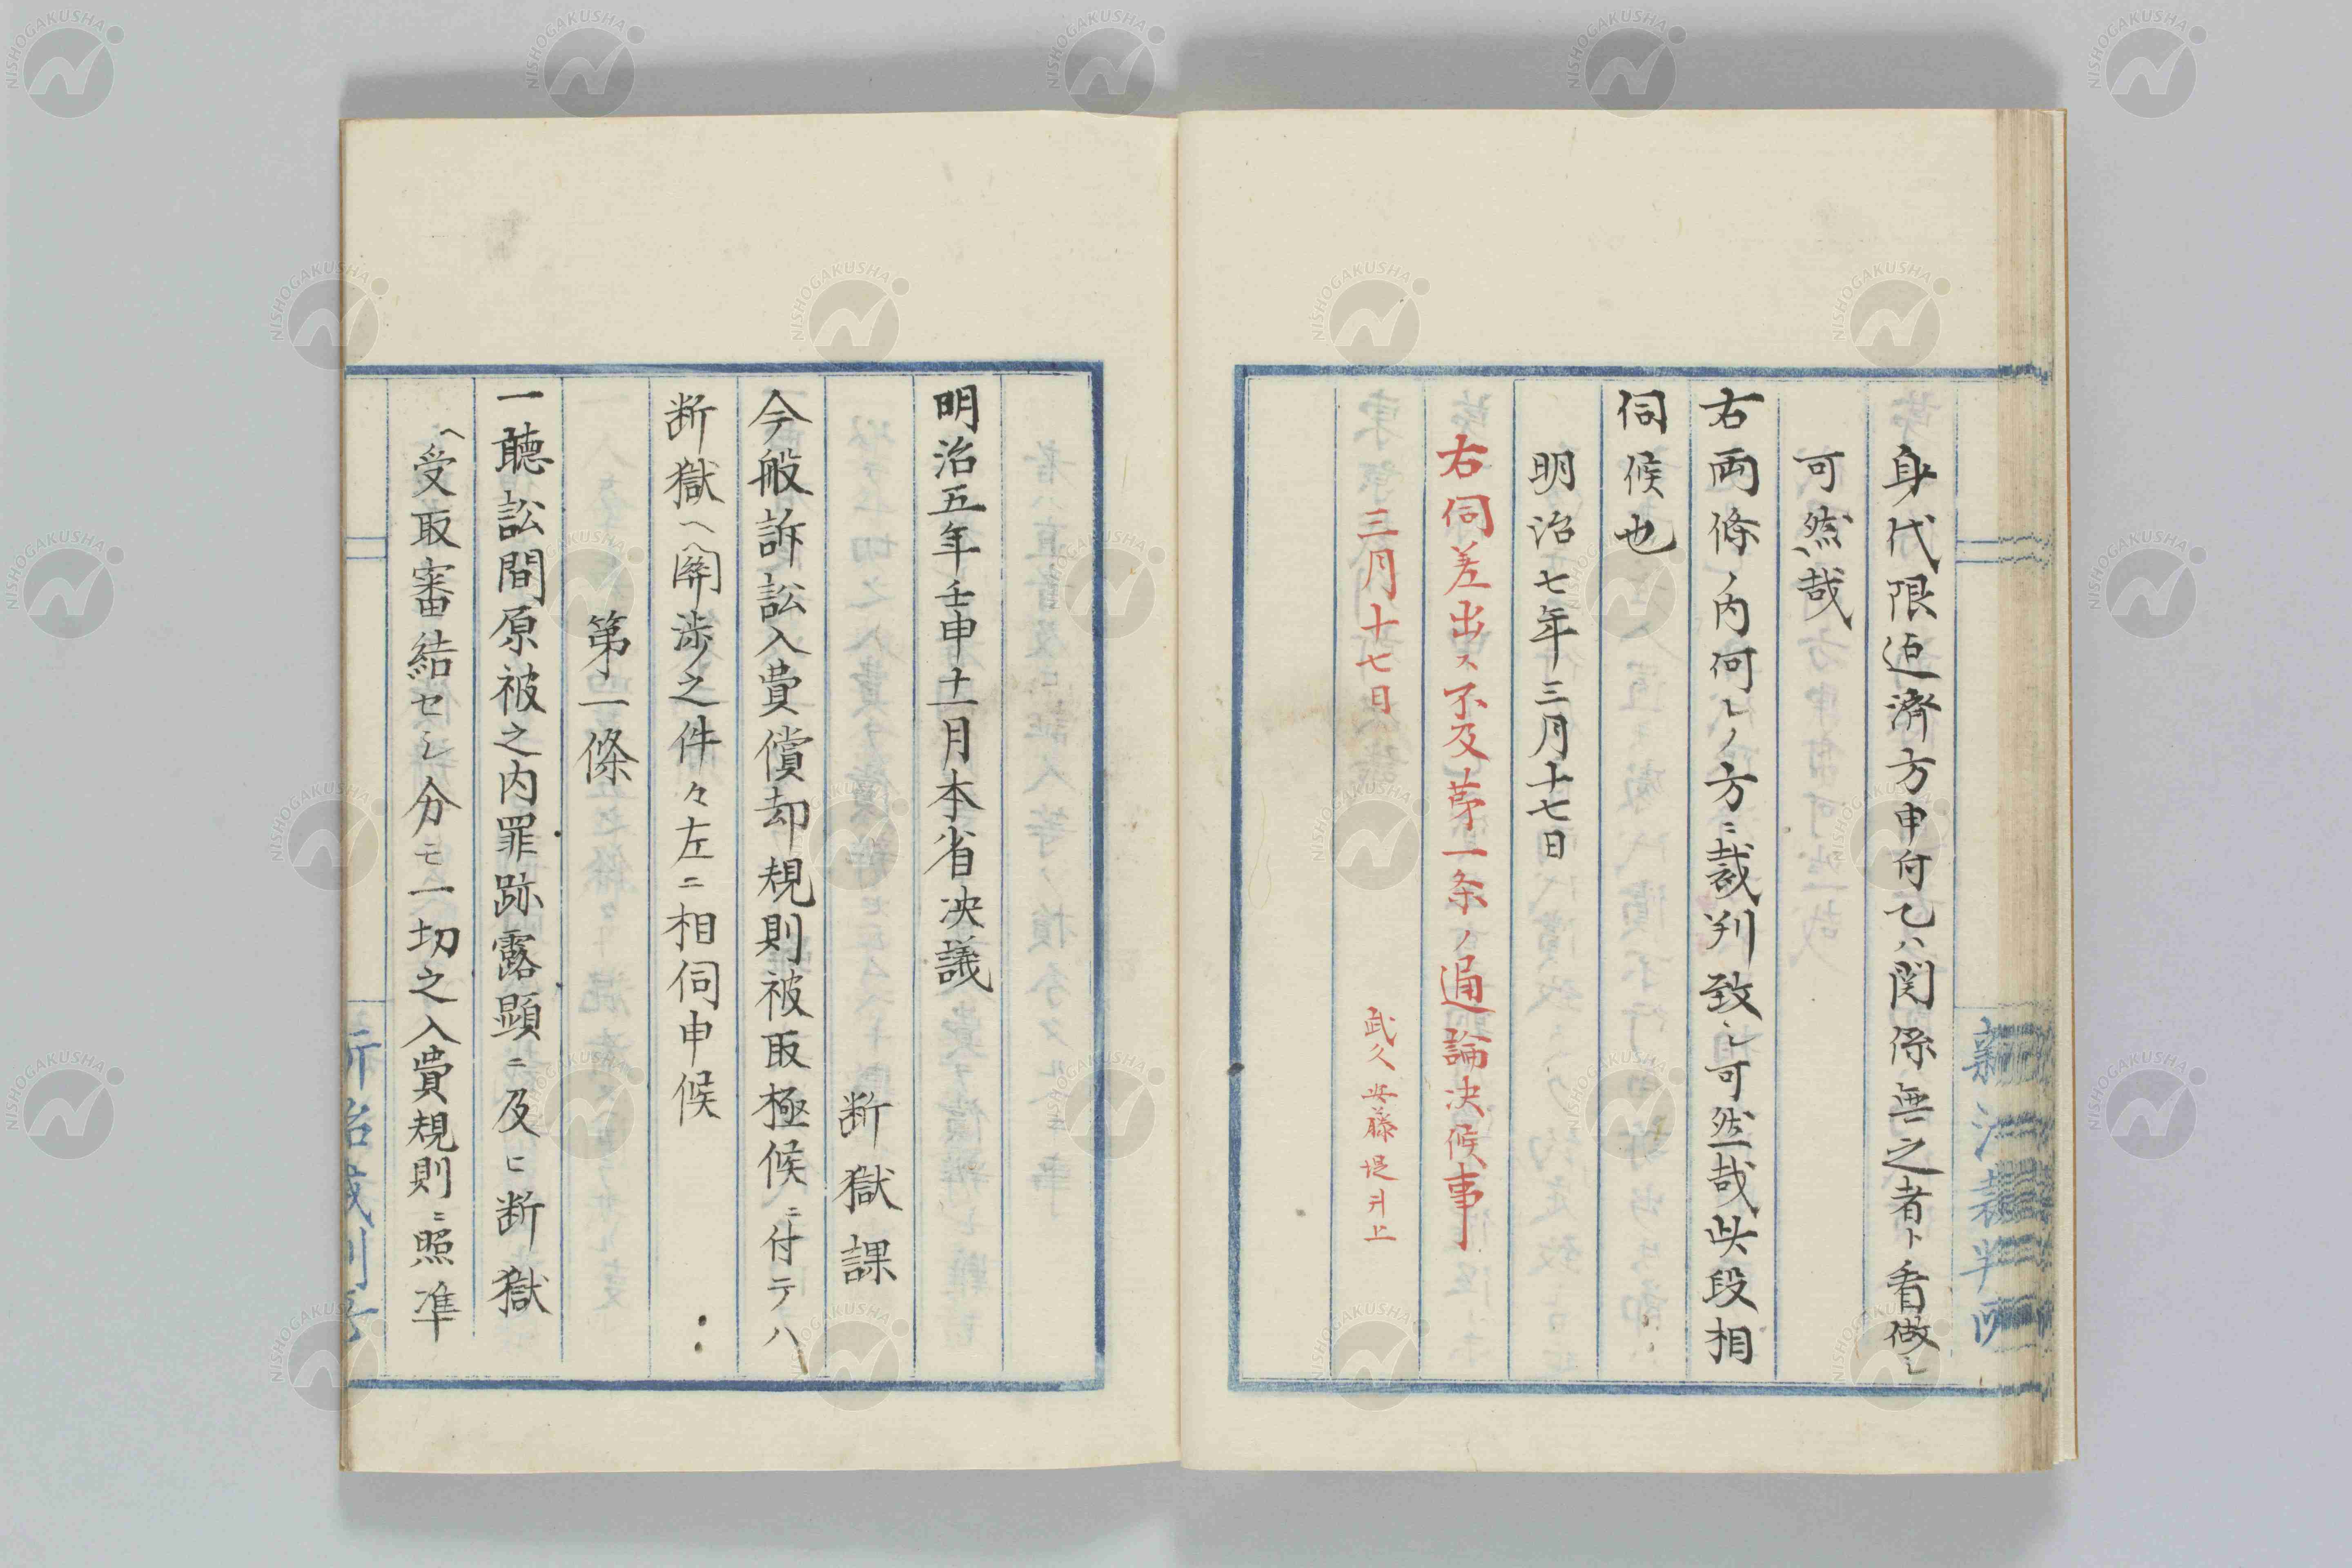 身代限迠濟方申付乙ハ関係無之者ト看做シ
可然哉
右両條ノ内何レノ方ニ裁判致シ可然哉此段相
伺候也
明治七年三月十七日
右伺差出ス不及苐一条ノ通論决候事
三月十七日 武久 安藤 堤 井上
新治裁判所
明治五年壬申十一月本省决議
断獄課
今般訴訟入費償却規則被取極候ニ付テハ
断獄ヘ関渉之件々左ニ相伺申候
第一條
一聴訟間原被之内罪跡露顕ニ及ヒ断獄
ヘ受取審結セシ分モ一切之入費規則ニ照準
新治裁判所
NISHOGAKUSHA